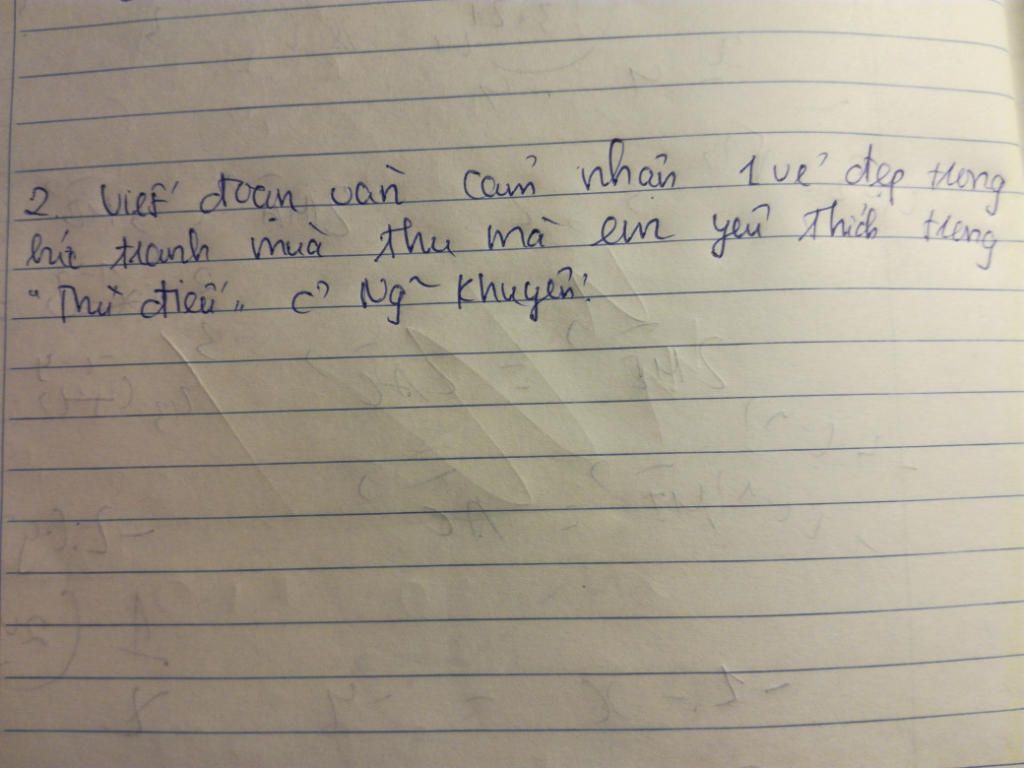 2. Viết đoạn văn cảm nhận 1 vẻ đẹp trong
bức tranh mùa thu mà em yêu thích trong
"Thu điếu" c̉ Ng~ Khuyến.